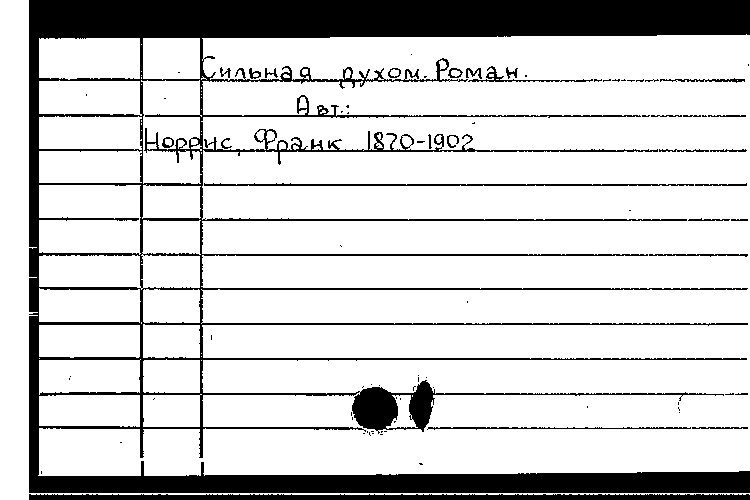 Сильная духом. Роман.
Авт.:
Норрис, Франк 1870-1902